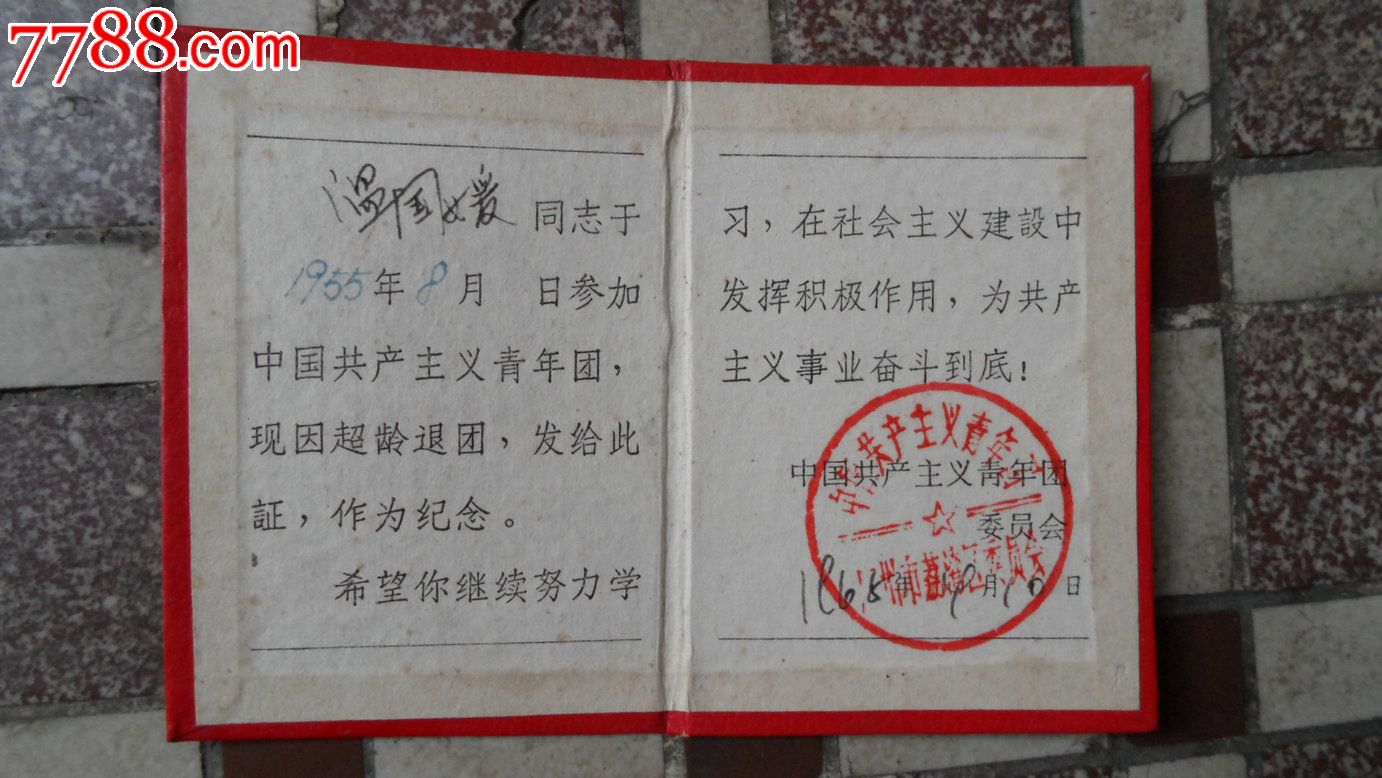 7788.com
温国媛 同志于
1955年8月 日参加
中国共产主义青年团，
现因超龄退团，发给此
証，作为纪念。
希望你继续努力学
习，在社会主义建設中
发挥积极作用，为共产
主义事业奋斗到底！
中国共产主义青年团
委员会
1965年 月 日
中国共产主义青年团
广州市荔湾区委员会